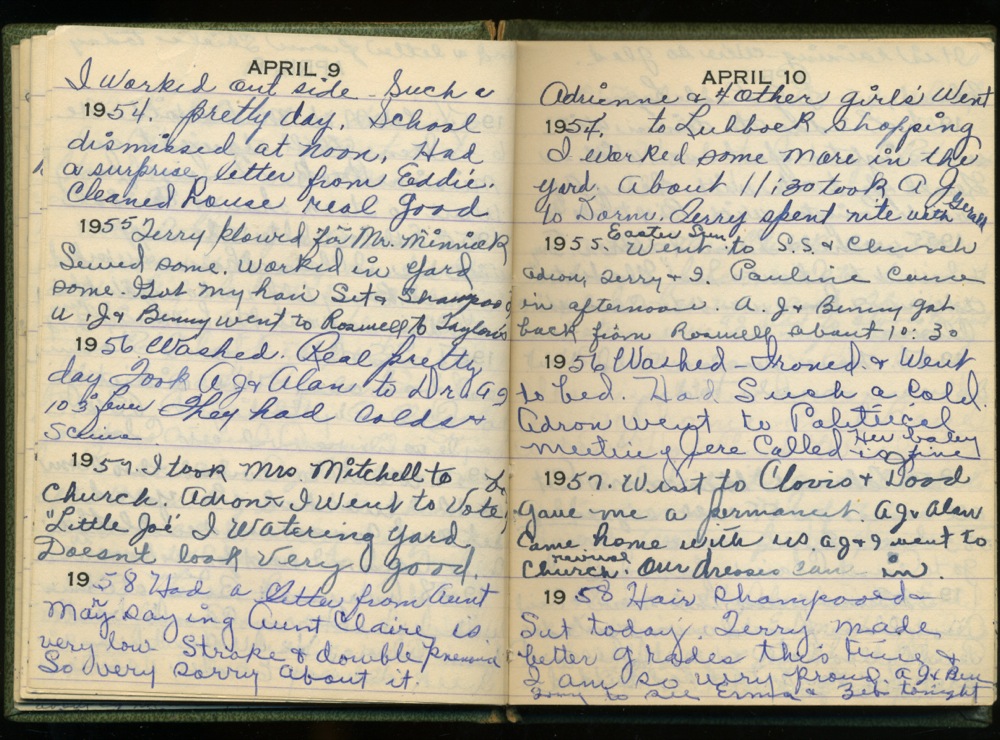 APRIL 9
I Worked out side - Such a
1954. pretty day. School
dismissed at noon. Had
a surprise letter from Eddie.
Cleaned house real good
1955 Terry plowed for Mr. Minnick
Sewed some. Worked in yard
some. Got my hair Set & Shampoo
A.J & Benny went to Roswell to Taylors
1956 Washed. Real pretty
day Took A J & Alan to Dr. A J
103° fever They had Colds &
1957. I took Mrs. Mitchell to
Church. Adron & I Went to Vote
"Little Joe" I Watering yard
Doesn't look Very good.
1958 Had a letter from Aunt
May saying Aunt Claire is
very low Stroke & double
So very sorry about it.
APRIL 10
Adrienne & 4 other girls Went
1954. to Lubbock shopping
I worked some more in the
yard. About 11:30 took A J
to Dorm. Terry spent nite with Gerald
Easter Sun.
1955. Went to S.S & Church
Adron, Terry & I. Pauline came
in afternoon. A.J & Benny got
back from Roswell about 10:30
1956 Washed - Ironed & Went
to bed. Had Such a Cold.
Adron went to Political
meeting Jere Called Her baby
is fine
1957. Went to Clovis & Dood
gave me a permanent. A J & Alan
Came home with us A J & I went to
revival
Church. Our dresses came in.
1958 Hair shampooed &
Set today Terry made
better grades this time &
I am so very proud. A J & Ben
to see Erma & Zeb tonight